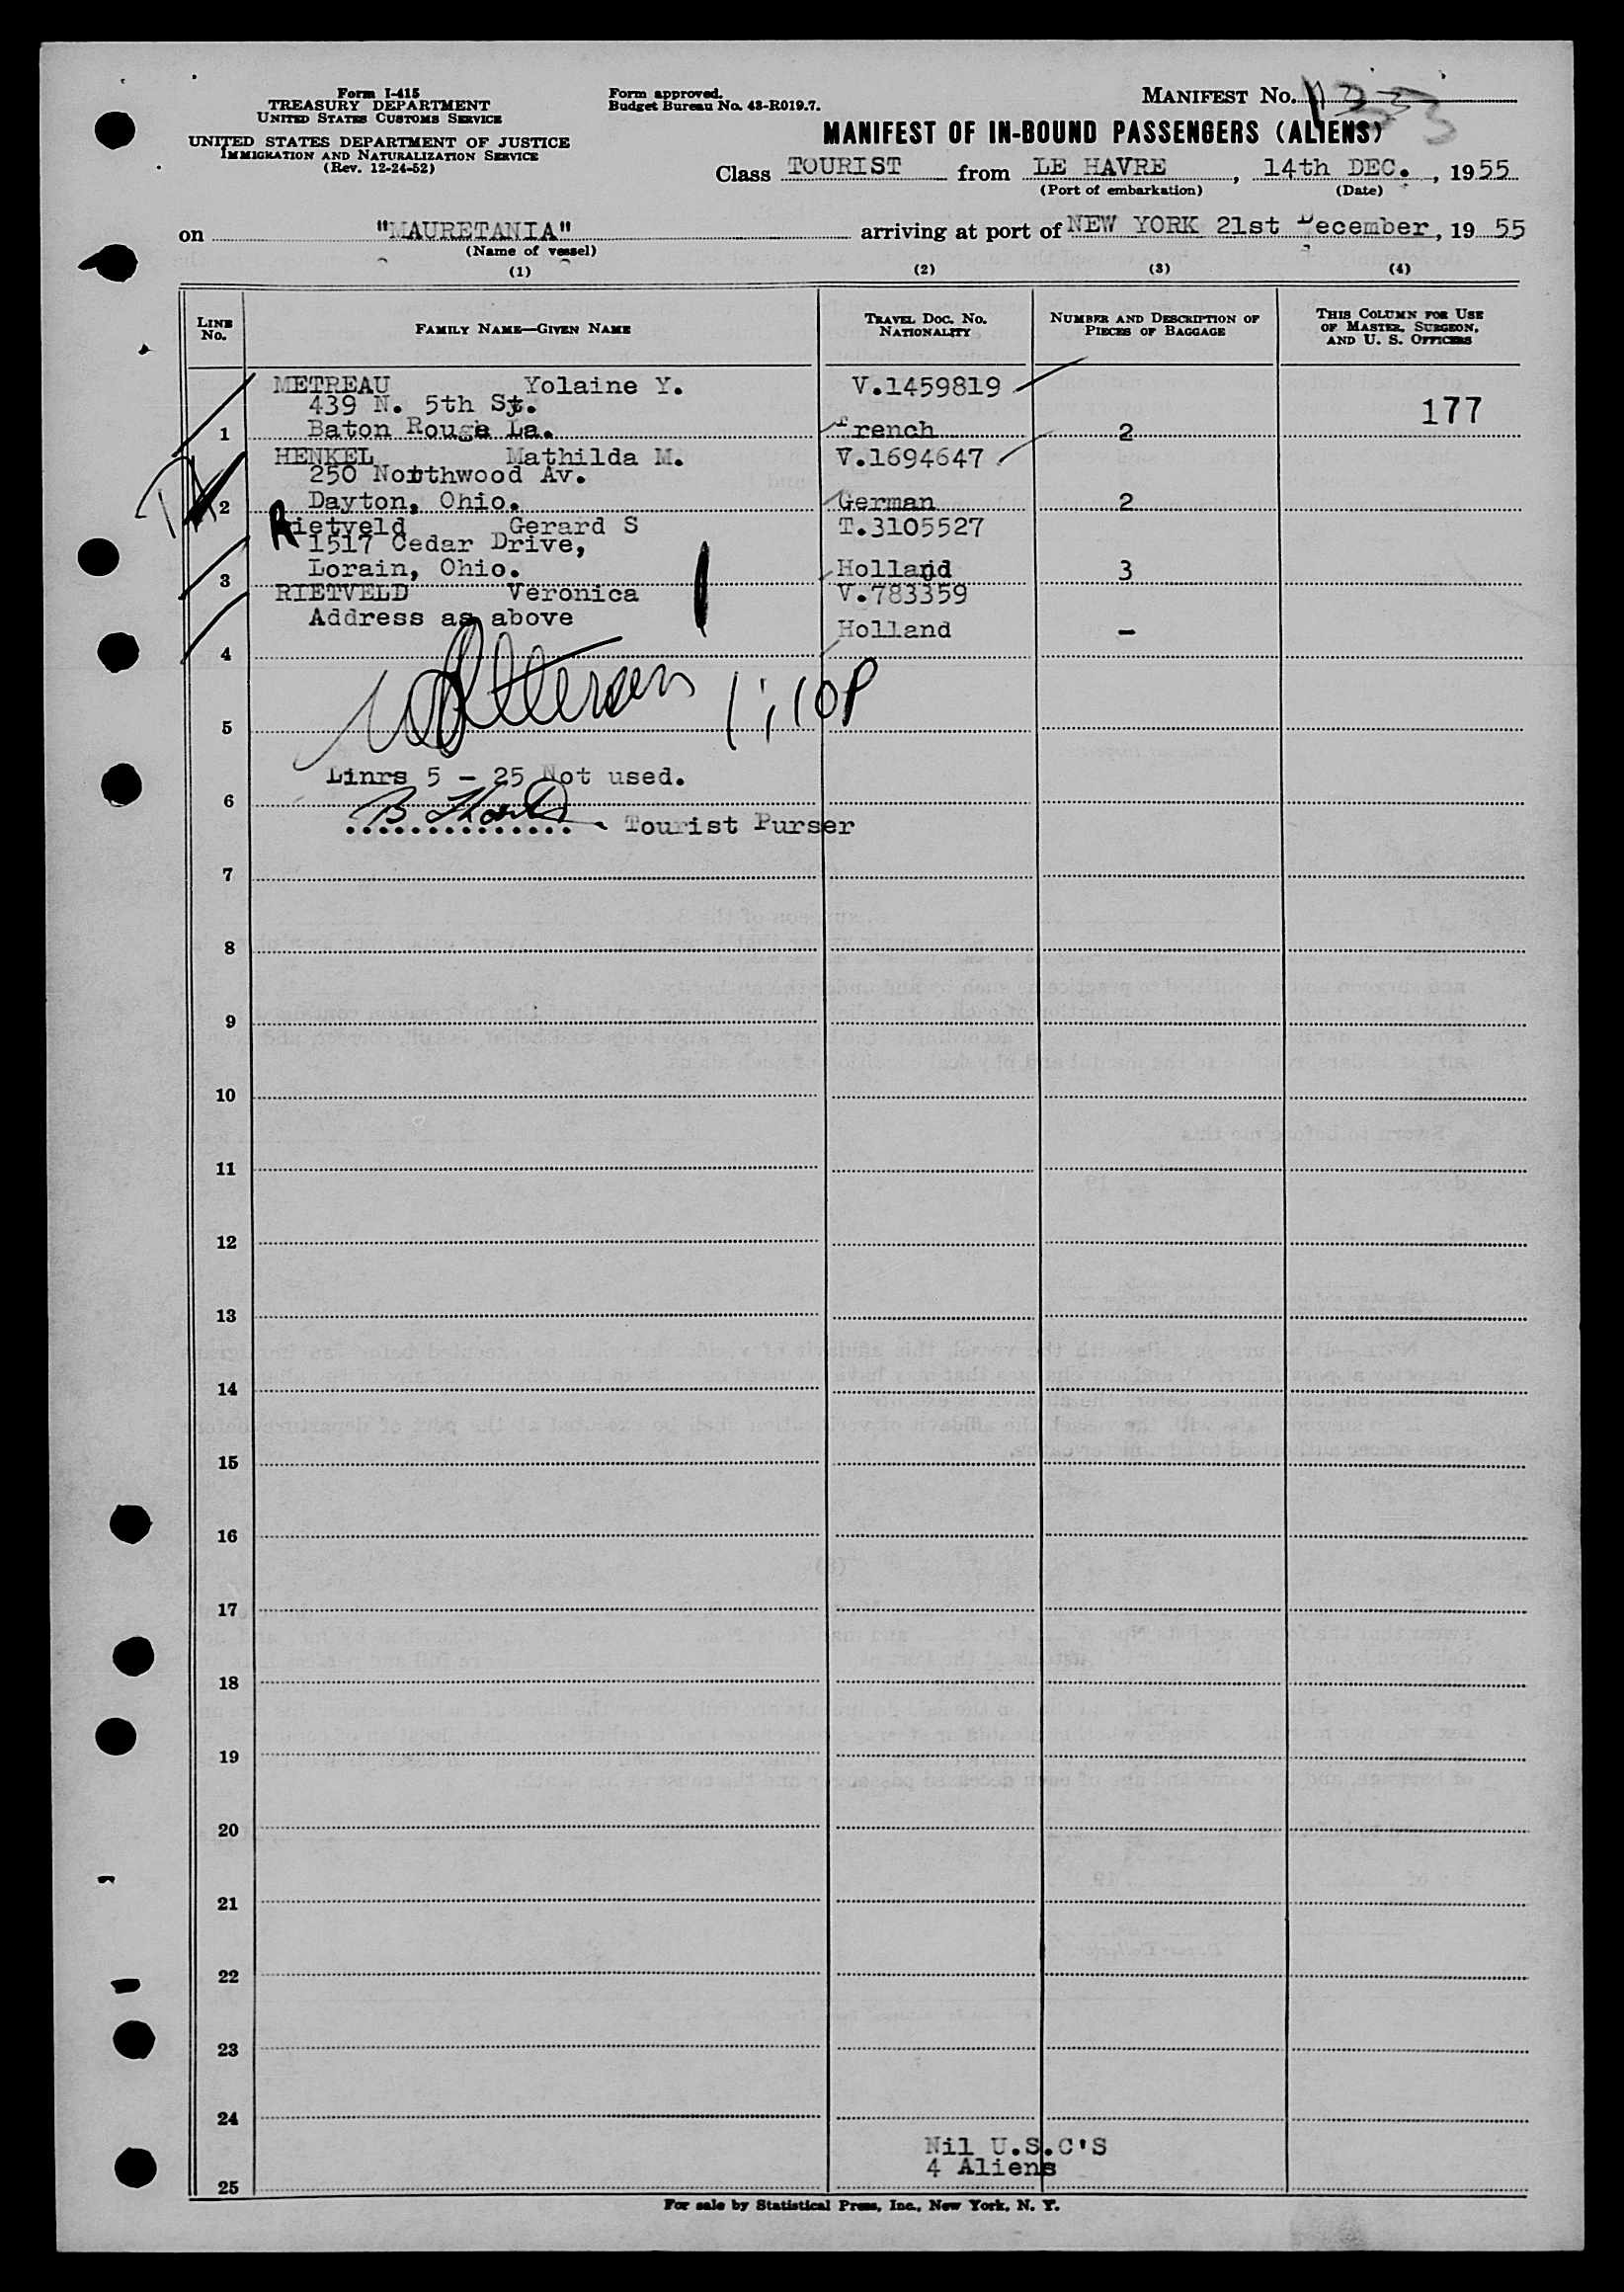 Form I-415
TREASURY DEPARTMENT
UNITED STATES CUSTOMS SERVICE
UNITED STATES DEPARTMENT OF JUSTICE
IMMIGRATION AND NATURALIZATION SERVICE
(Rev. 12-24-52)
Form approved.
Budget Bureau No. 43-R019.7.
MANIFEST No.
MANIFEST OF IN-BOUND PASSENGERS (ALIENS)
Class TOURIST from LE HAVRE, 14th DEC., 1955
(Port of embarkation) (Date)
on "MAURETANIA" arriving at port of NEW YORK 21st December, 1955
(Name of vessel)
(1) (2) (3) (4)
LINE No. FAMILY NAME—GIVEN NAME TRAVEL DOC. NO. NATIONALITY NUMBER AND DESCRIPTION OF PIECES OF BAGGAGE THIS COLUMN FOR USE OF MASTER, SURGEON, AND U. S. OFFICERS
METREAU Yolaine Y. V.1459819
439 N. 5th St. 177
1 Baton Rouge La. French 2
HENKEL Mathilda M. V.1694647
250 Northwood Av.
2 Dayton, Ohio. German 2
Rietveld Gerard S T.3105527
1517 Cedar Drive,
3 Lorain, Ohio. Holland 3
RIETVELD Veronica V.783359
Address as above Holland –
4
1:10P
5
Linrs 5 – 25 Not used.
6
Tourist Purser
7
8
9
10
11
12
13
14
15
16
17
18
19
20
21
22
23
24
Nil U.S.C'S
4 Aliens
25
For sale by Statistical Press, Inc., New York, N. Y.